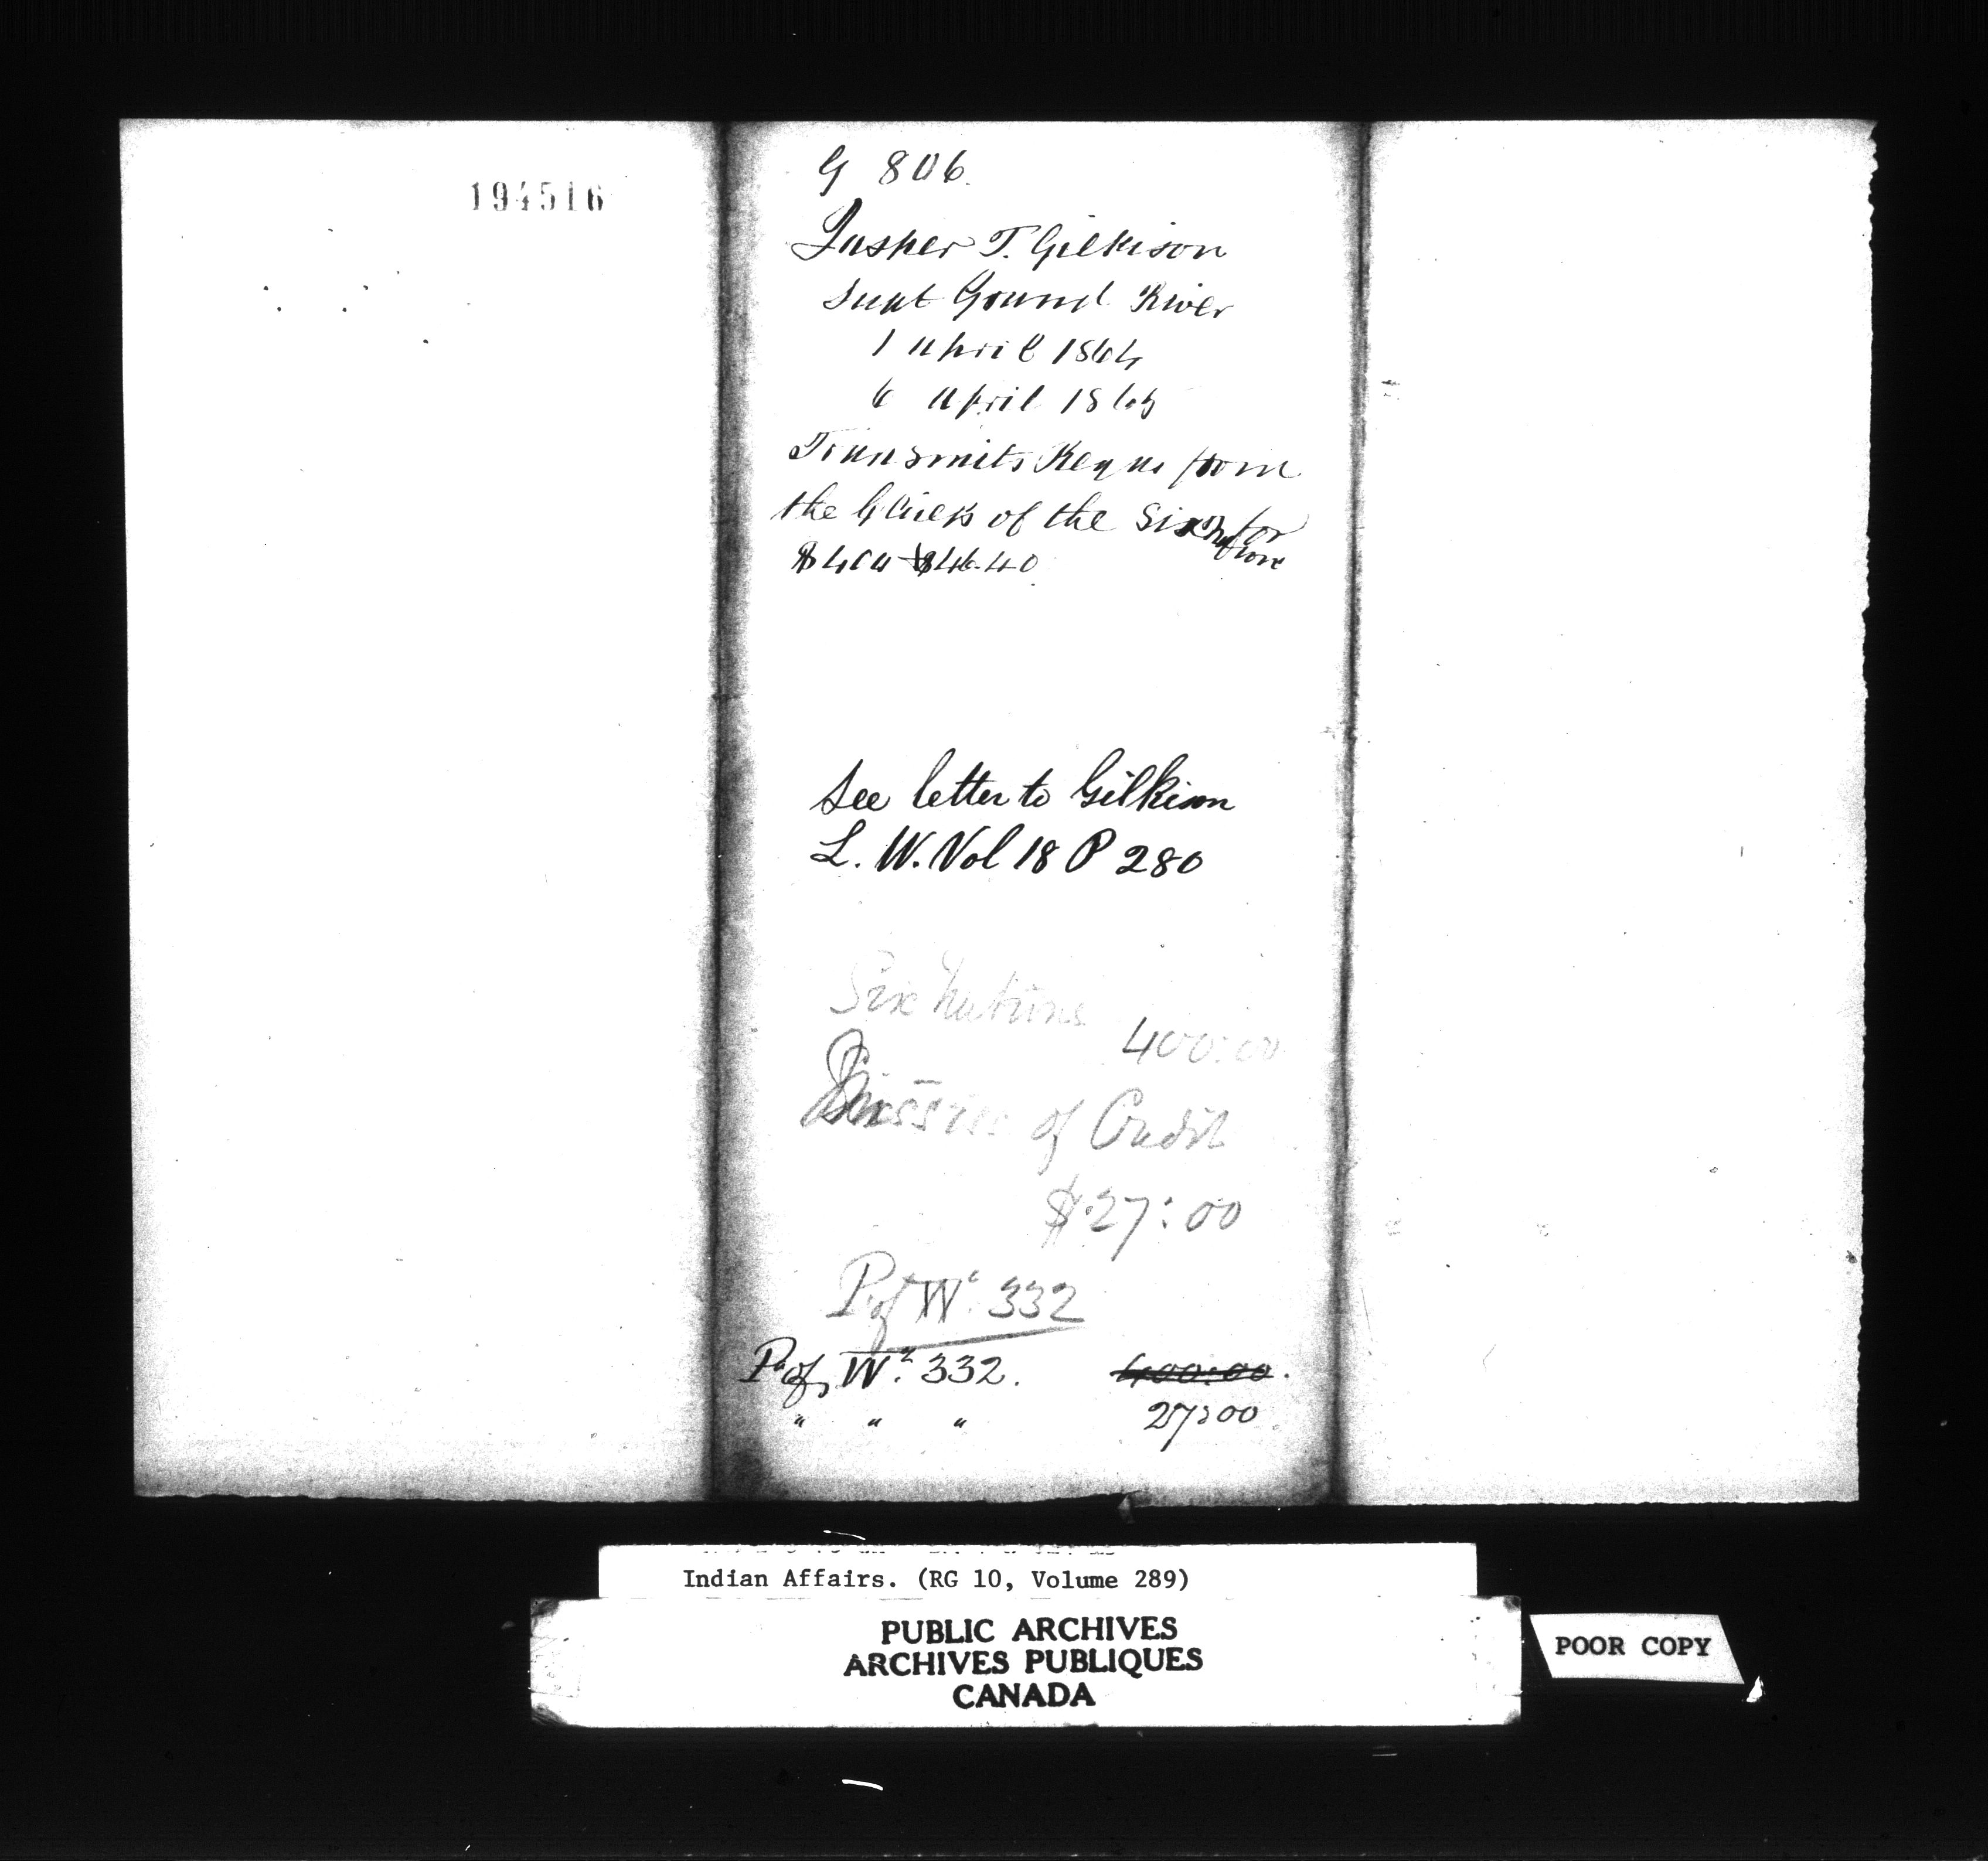 194516
G 806.
Jasper T. Gilkison
Supt Grand River
1 April 1864
6 April 186
Transmits Requs from
the Chiefs of the Six Nations for
$400 $46.40
See letter to Gilkison
L. W. Vol 18 P 280
Six Nations
400:00
of Credit
$27:00
P. of Wt. 332
P. of Wt. 332. 400:00.
" " " 27:00
Indian Affairs. (RG 10, Volume 289)
PUBLIC ARCHIVES
ARCHIVES PUBLIQUES
CANADA
POOR COPY